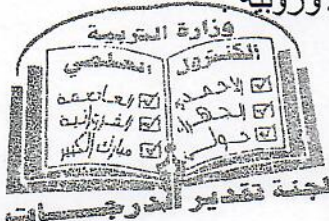 وزارة التربية
الكنترول العلمي
☑ الاحمدي
☑ الجهراء
☑ حولي
☑ العاصمة
☑ الفروانية
☑ مبارك الكبير
لجنة تقدير الدرجات